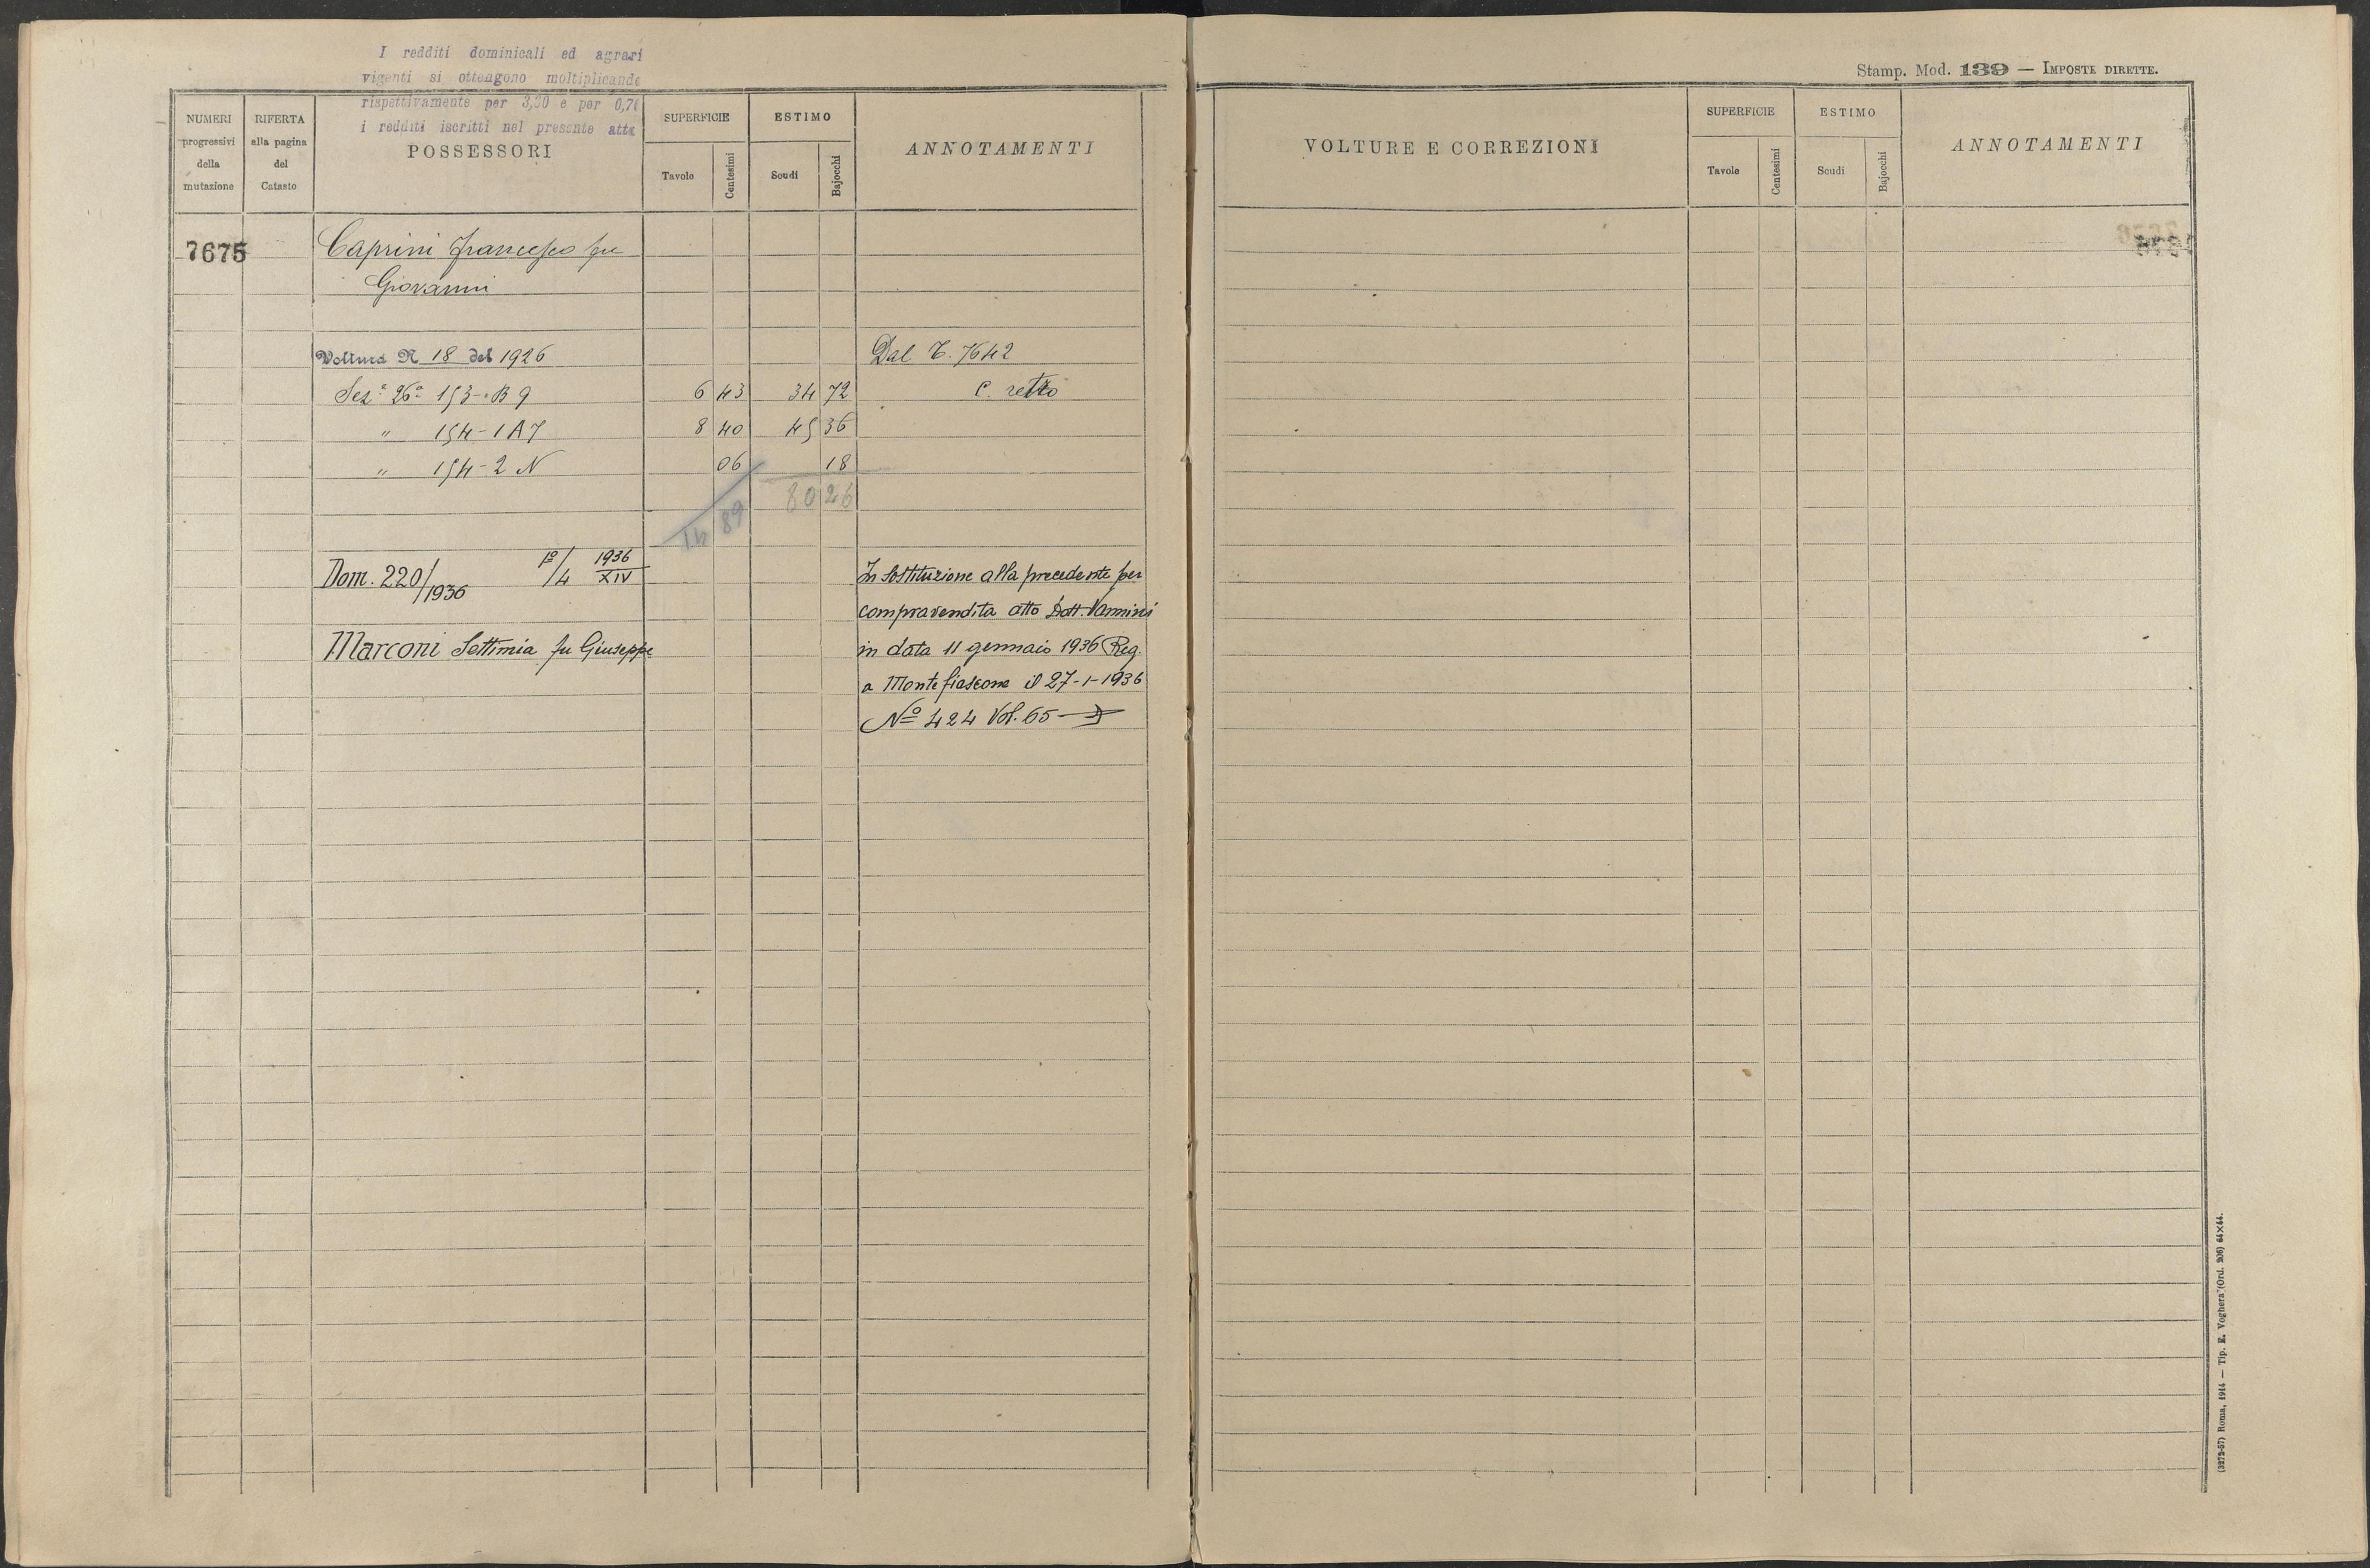 I redditi dominicali ed agrari
vigenti si ottengono moltiplicando
rispettivamente per 3,20 e per 0,70
i redditi iscritti nel presente atto
NUMERI
progressivi
della
mutazione
RIFERTA
alla pagina
del
Catasto
POSSESSORI
SUPERFICIE
Tavole
Centesimi
ESTIMO
Scudi
Bajocchi
ANNOTAMENTI
7675 Caprini Francesco fu
Giovanni
Voltura N 18 del 1926 Dal T. 7642
Sez.e 26a 153-B 9 6 43 34 72 C. retro
" 154-1 A7 8 40 45 36
" 154-2 N 06 18
14 89 80 26
Dom. 220/1936 1º/4 1936 XIV In sostituzione alla precedente per
compravendita atto Dott. Vannini
Marconi Settimia fu Giuseppe in data 11 gennaio 1936 Reg.
a Montefiascone il 27-1-1936
Nº 424 Vol. 65
Stamp. Mod. 139 — IMPOSTE DIRETTE.
VOLTURE E CORREZIONI
SUPERFICIE
Tavole
Centesimi
ESTIMO
Scudi
Bajocchi
ANNOTAMENTI
(3272-57) Roma, 1914 — Tip. E. Voghera (Ord. 206) 64×44.